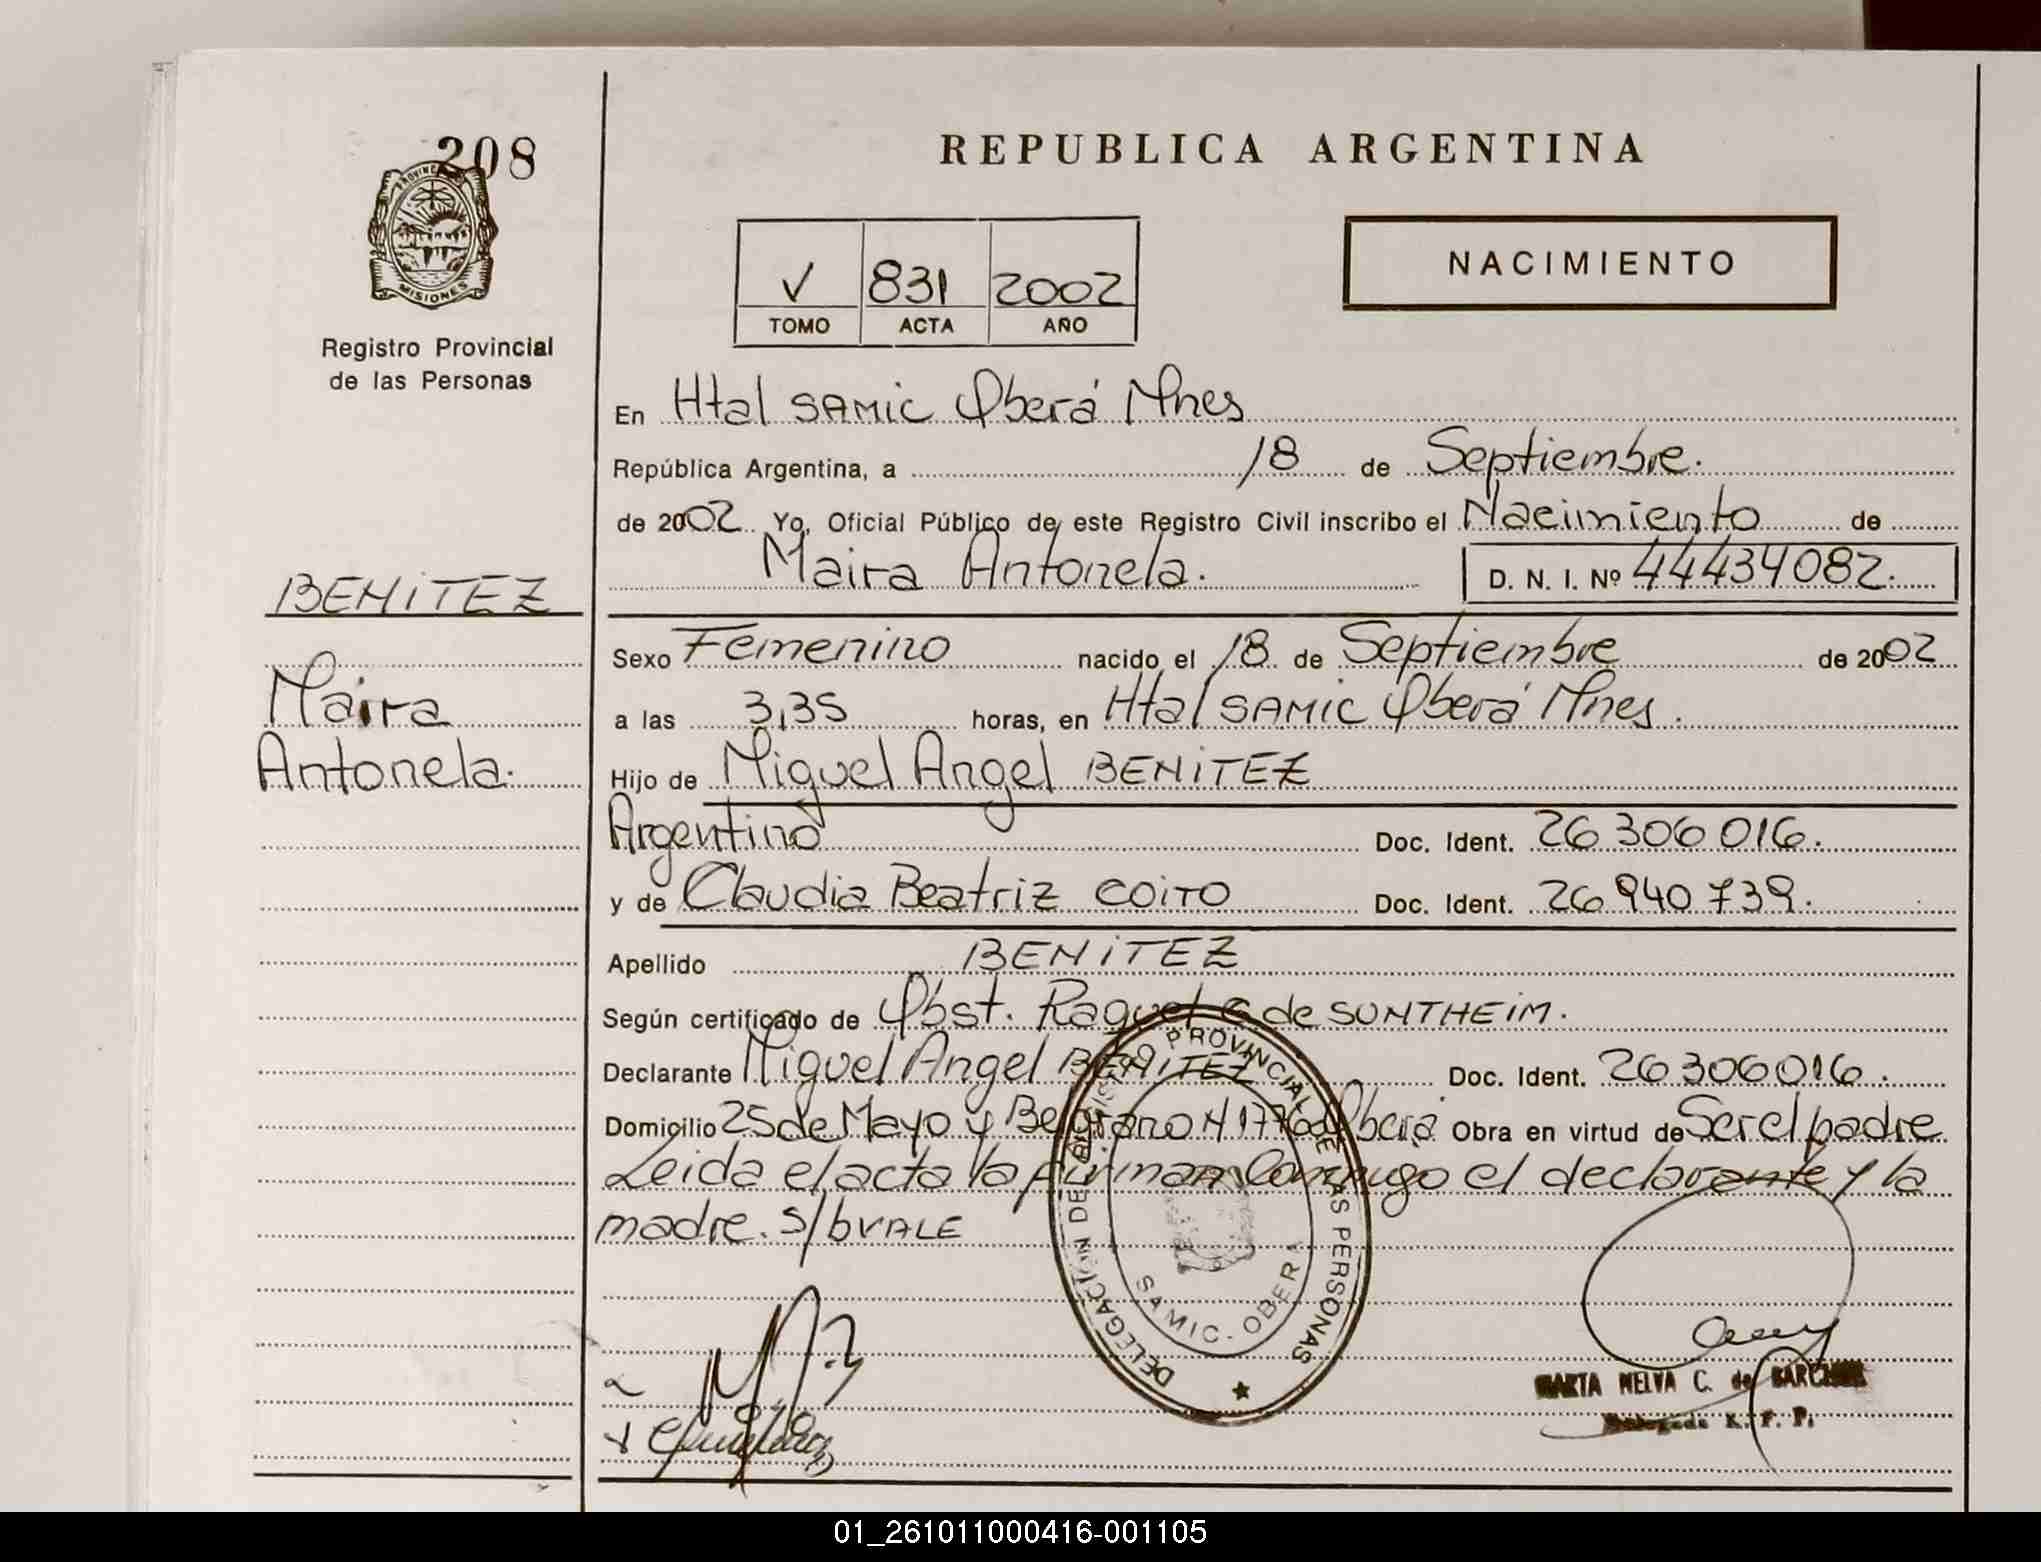 208
PROVINCIA
MISIONES
Registro Provincial
de las Personas
BENITEZ
Maira
Antonela.
REPUBLICA ARGENTINA
V 831 2002
TOMO ACTA AÑO
NACIMIENTO
En Htal SAMIC Oberá Mnes
República Argentina, a 18 de Septiembre.
de 2002 Yo, Oficial Público de este Registro Civil inscribo el Nacimiento de
Maira Antonela. D. N. I. Nº 44434082.
Sexo Femenino nacido el 18 de Septiembre de 2002
a las 3,35 horas, en Htal SAMIC Oberá Mnes.
Hijo de Miguel Angel BENITEZ
Argentino Doc. Ident. 26306016.
y de Claudia Beatriz COITO Doc. Ident. 26940739.
Apellido BENITEZ
Según certificado de Obst. Raquel G de SONTHEIM.
Declarante Miguel Angel BENITEZ Doc. Ident. 26306016.
Domicilio 25 de Mayo y Belgrano N 1776 Oberá Obra en virtud de Ser el padre
Leida el acta la firman conmigo el declarante y la
madre. S/b VALE
DELEGACIÓN DEL REGISTRO PROVINCIAL DE LAS PERSONAS
SAMIC - OBERA
MARTA NELVA C. de
R. P. P.
01_261011000416-001105